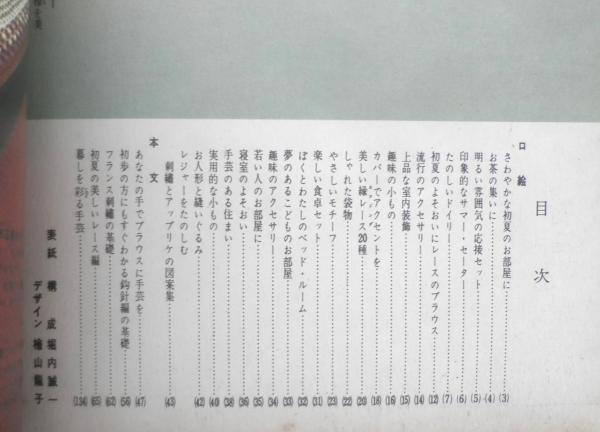 目次
口絵
さわやかな初夏のお部屋に……(3)
お茶の集いに……(4)
明るい雰囲気の応接セット……(5)
印象的なサマー・セーター……(6)
たのしいドイリー……(7)
初夏のよそおいにレースのブラウス……(12)
流行のアクセサリー……(14)
上品な室内装飾……(15)
趣味の小もの……(16)
カバーでアクセントを……(18)
美しい縁レース20種……(20)
しゃれた袋物……(22)
やさしいモチーフ……(23)
楽しい食卓セット……(31)
ぼくとわたしのベッド・ルーム……(32)
夢のあるこどものお部屋……(33)
趣味のアクセサリー……(34)
若い人のお部屋に……(35)
寝室のよそおい……(36)
手芸のある住まい……(38)
実用的な小もの……(40)
お人形と縫いぐるみ……(42)
レジャーをたのしむ
刺繡とアップリケの図案集……(43)
本文
あなたの手でブラウスに手芸を……(47)
初歩の方にもすぐわかる鈎針編の基礎……(56)
フランス刺繡の基礎……(62)
初夏の美しいレース編……(65)
暮しを彩る手芸……(134)
表紙 構成 堀内誠一
デザイン 檜山龍子